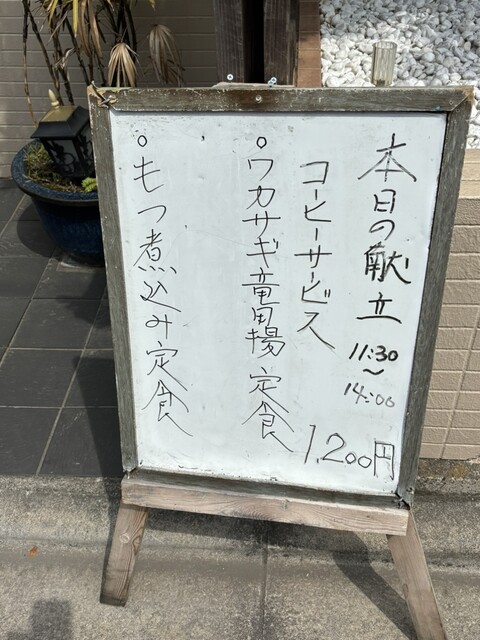 本日の献立
11:30
~
14:00
コーヒーサービス
1,200円
○ワカサギ竜田揚定食
○もつ煮込み定食